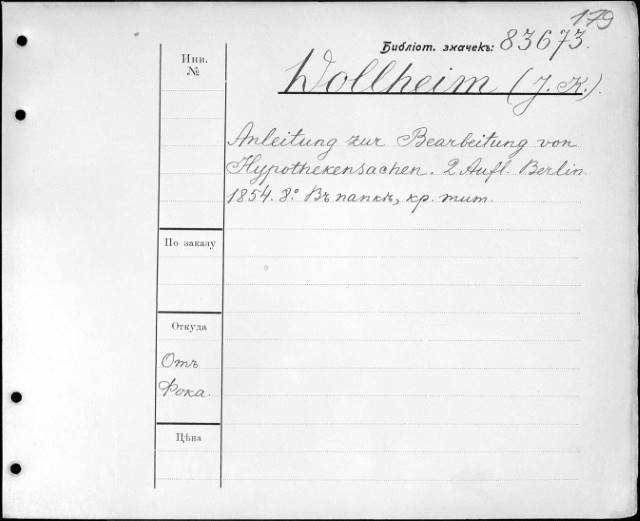 179
Библіот. значекъ: 83673.
Инв.
№
Wollheim (J. K.).
Anleitung zur Bearbeitung von
Hypothekensachen. 2 Aufl. Berlin.
1854. 8° Въ папкѣ, кр. тит.
По заказу
Откуда
Отъ
Фока.
Цѣна